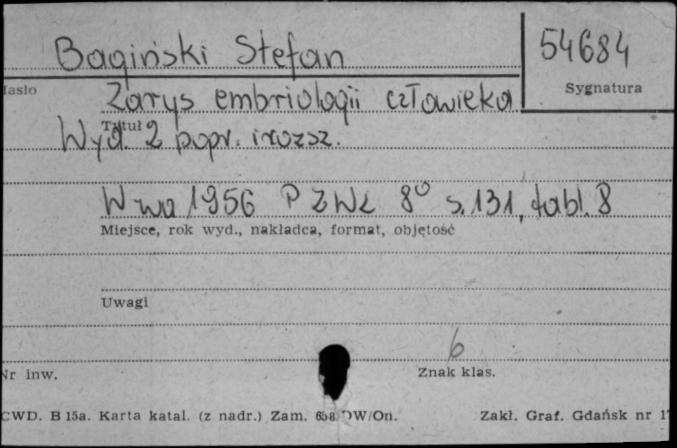 Bagiński Stefan
54684
asło
Sygnatura
Zarys embriologii człowieka
Tytuł
Wyd. 2 popr. i rozsz.
W-wa 1956 PZWL 8° s. 131, tabl. 8
Miejsce, rok wyd., nakładca, format, objętość
Uwagi
6
Nr inw.
Znak klas.
CWD. B 15a. Karta katal. (z nadr.) Zam. DW/On.
Zakł. Graf. Gdańsk nr